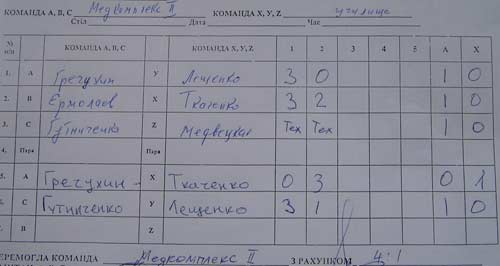 КОМАНДА А, В, С Медкомплекс II КОМАНДА X, У, Z училище
Стіл Дата Час
№ п/п КОМАНДА А, В, С КОМАНДА X, У, Z 1 2 3 4 5 А X
1. А Гречухин У Лещенко 3 0 1 0
2. В Ермолаев X Ткаченко 3 2 1 0
3. С Гутниченко Z Медвецкая Тех Тех 1 0
4. Пара Пара
5. А Гречухин X Ткаченко 0 3 0 1
6. С Гутниченко У Лещенко 3 1 1 0
7. В Z
ПЕРЕМОГЛА КОМАНДА Медкомплекс II З РАХУНКОМ 4:1